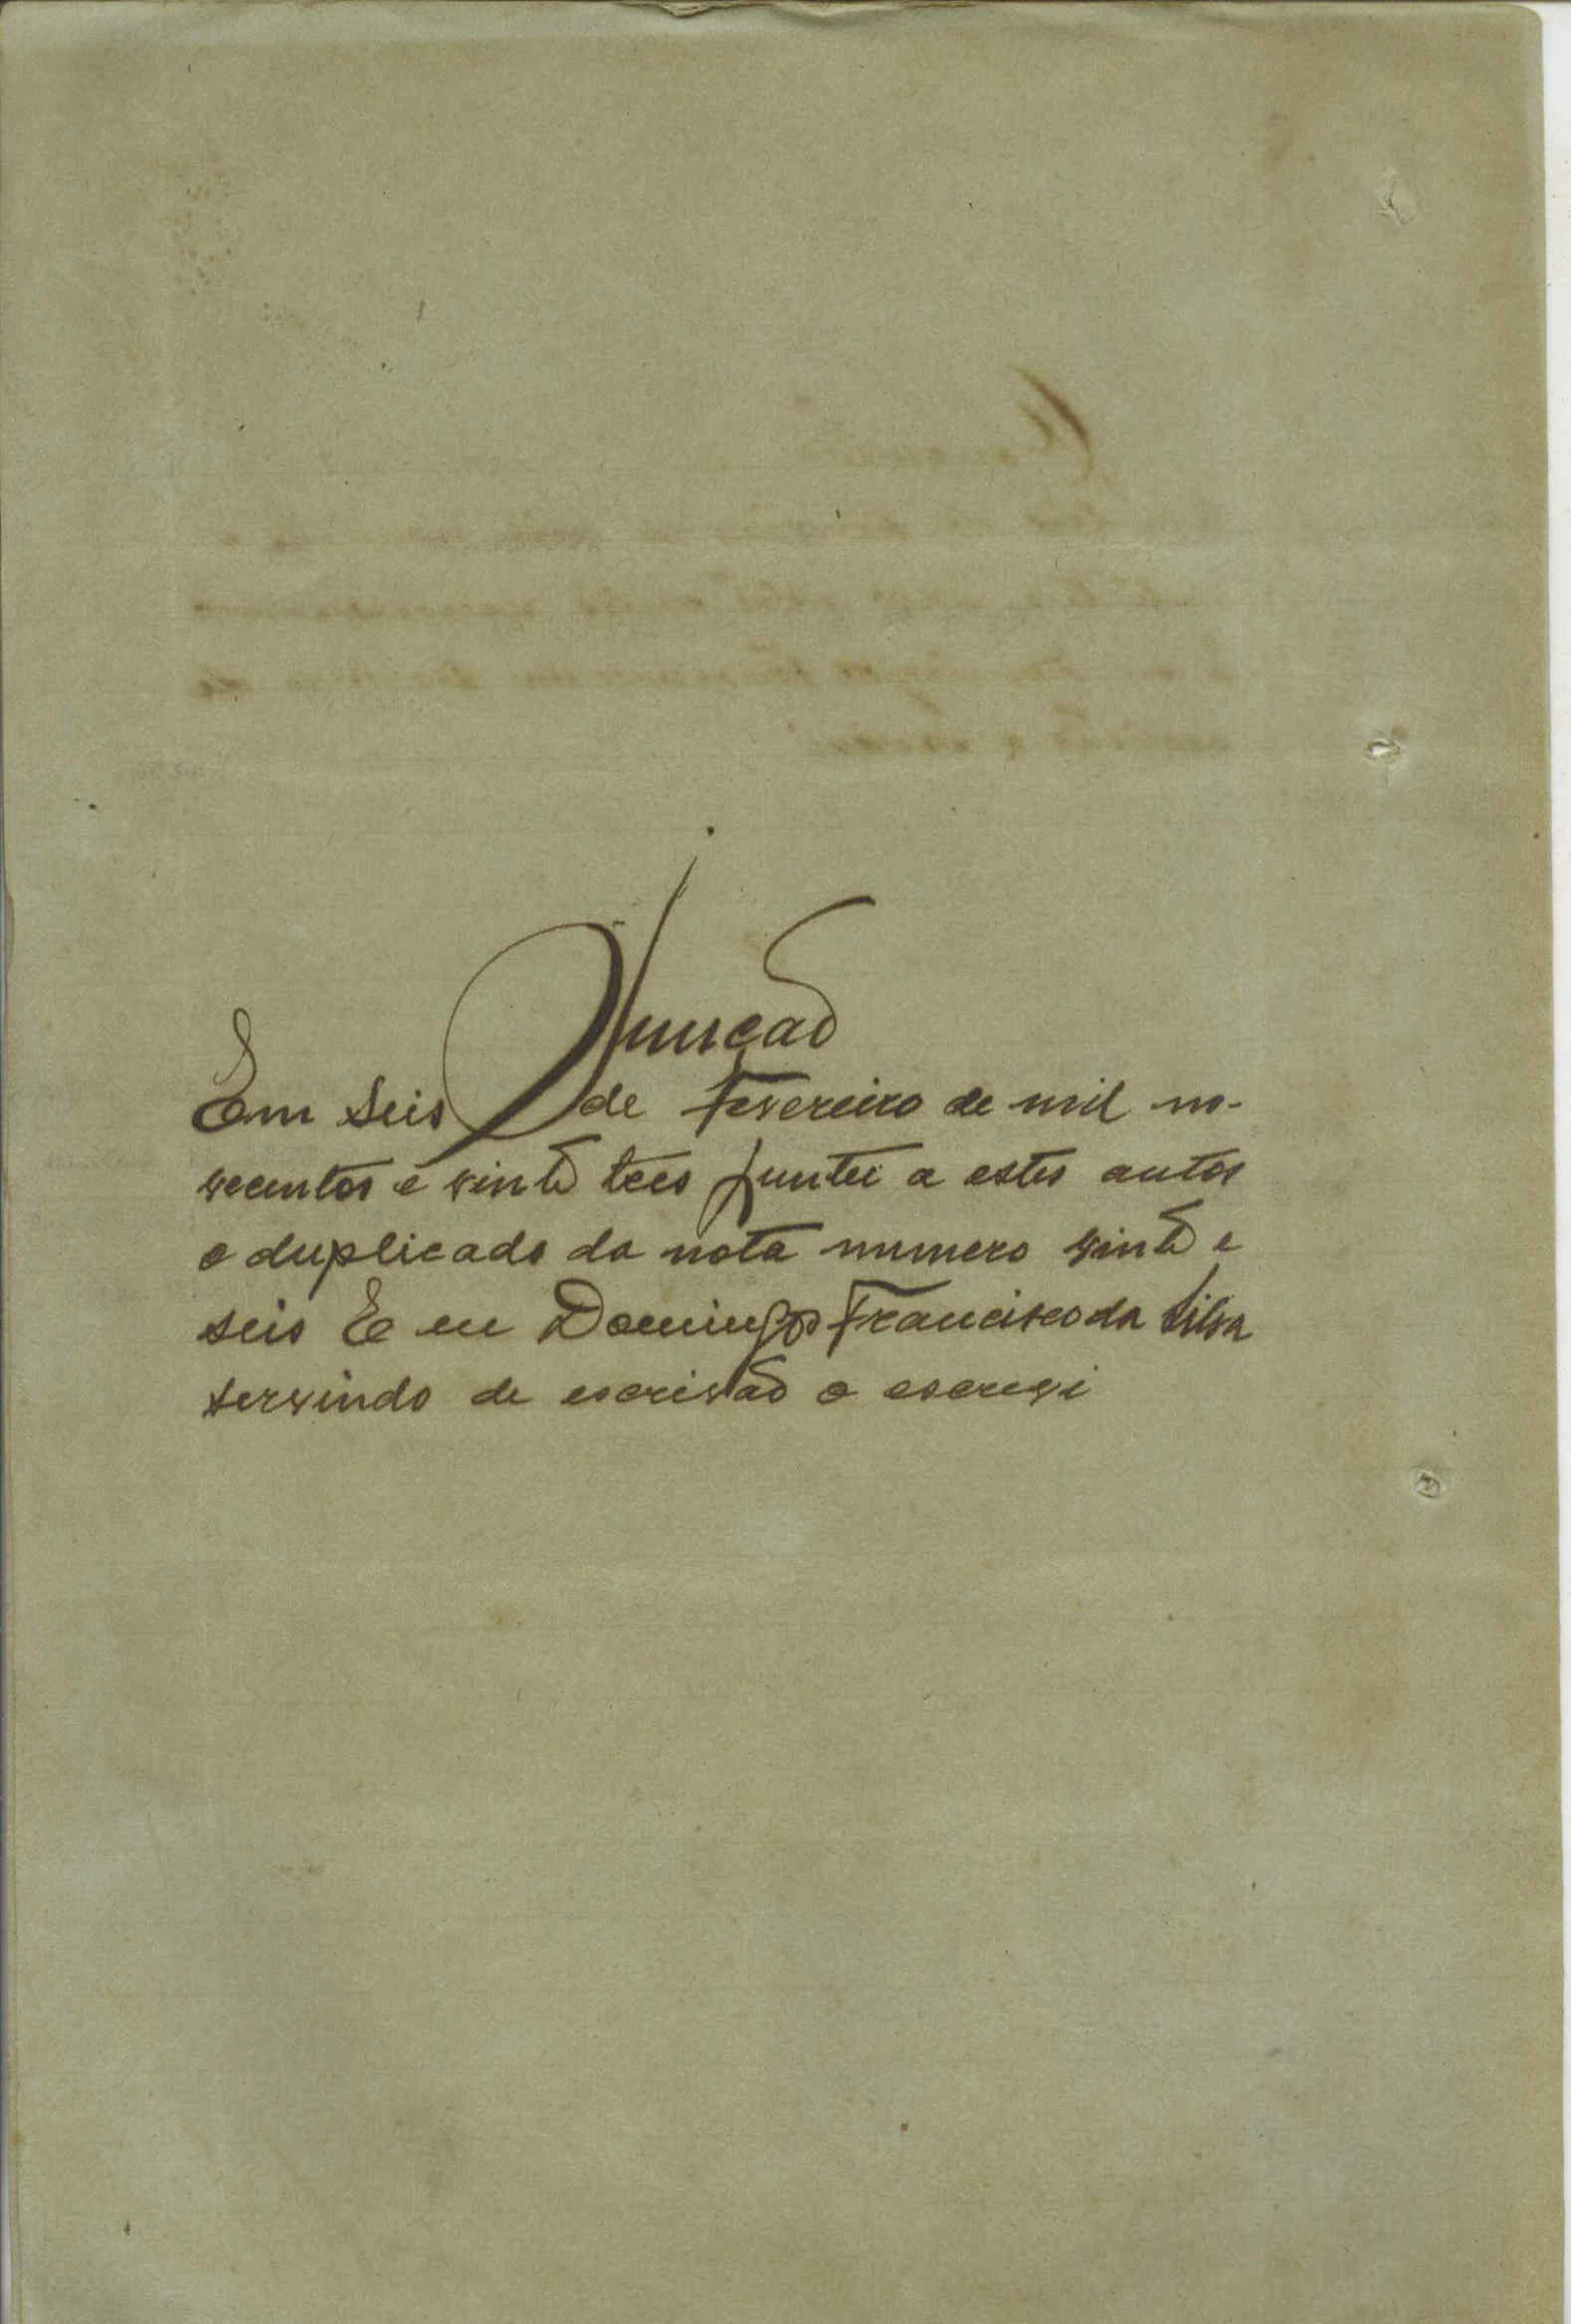 Junção
Em seis de Fevereiro de mil no-
vecentos e vinte tres juntei a estes autos
o duplicado da nota numero vinte e
seis E eu Domingos Francisco da Silva
servindo de escrivão o escrevi